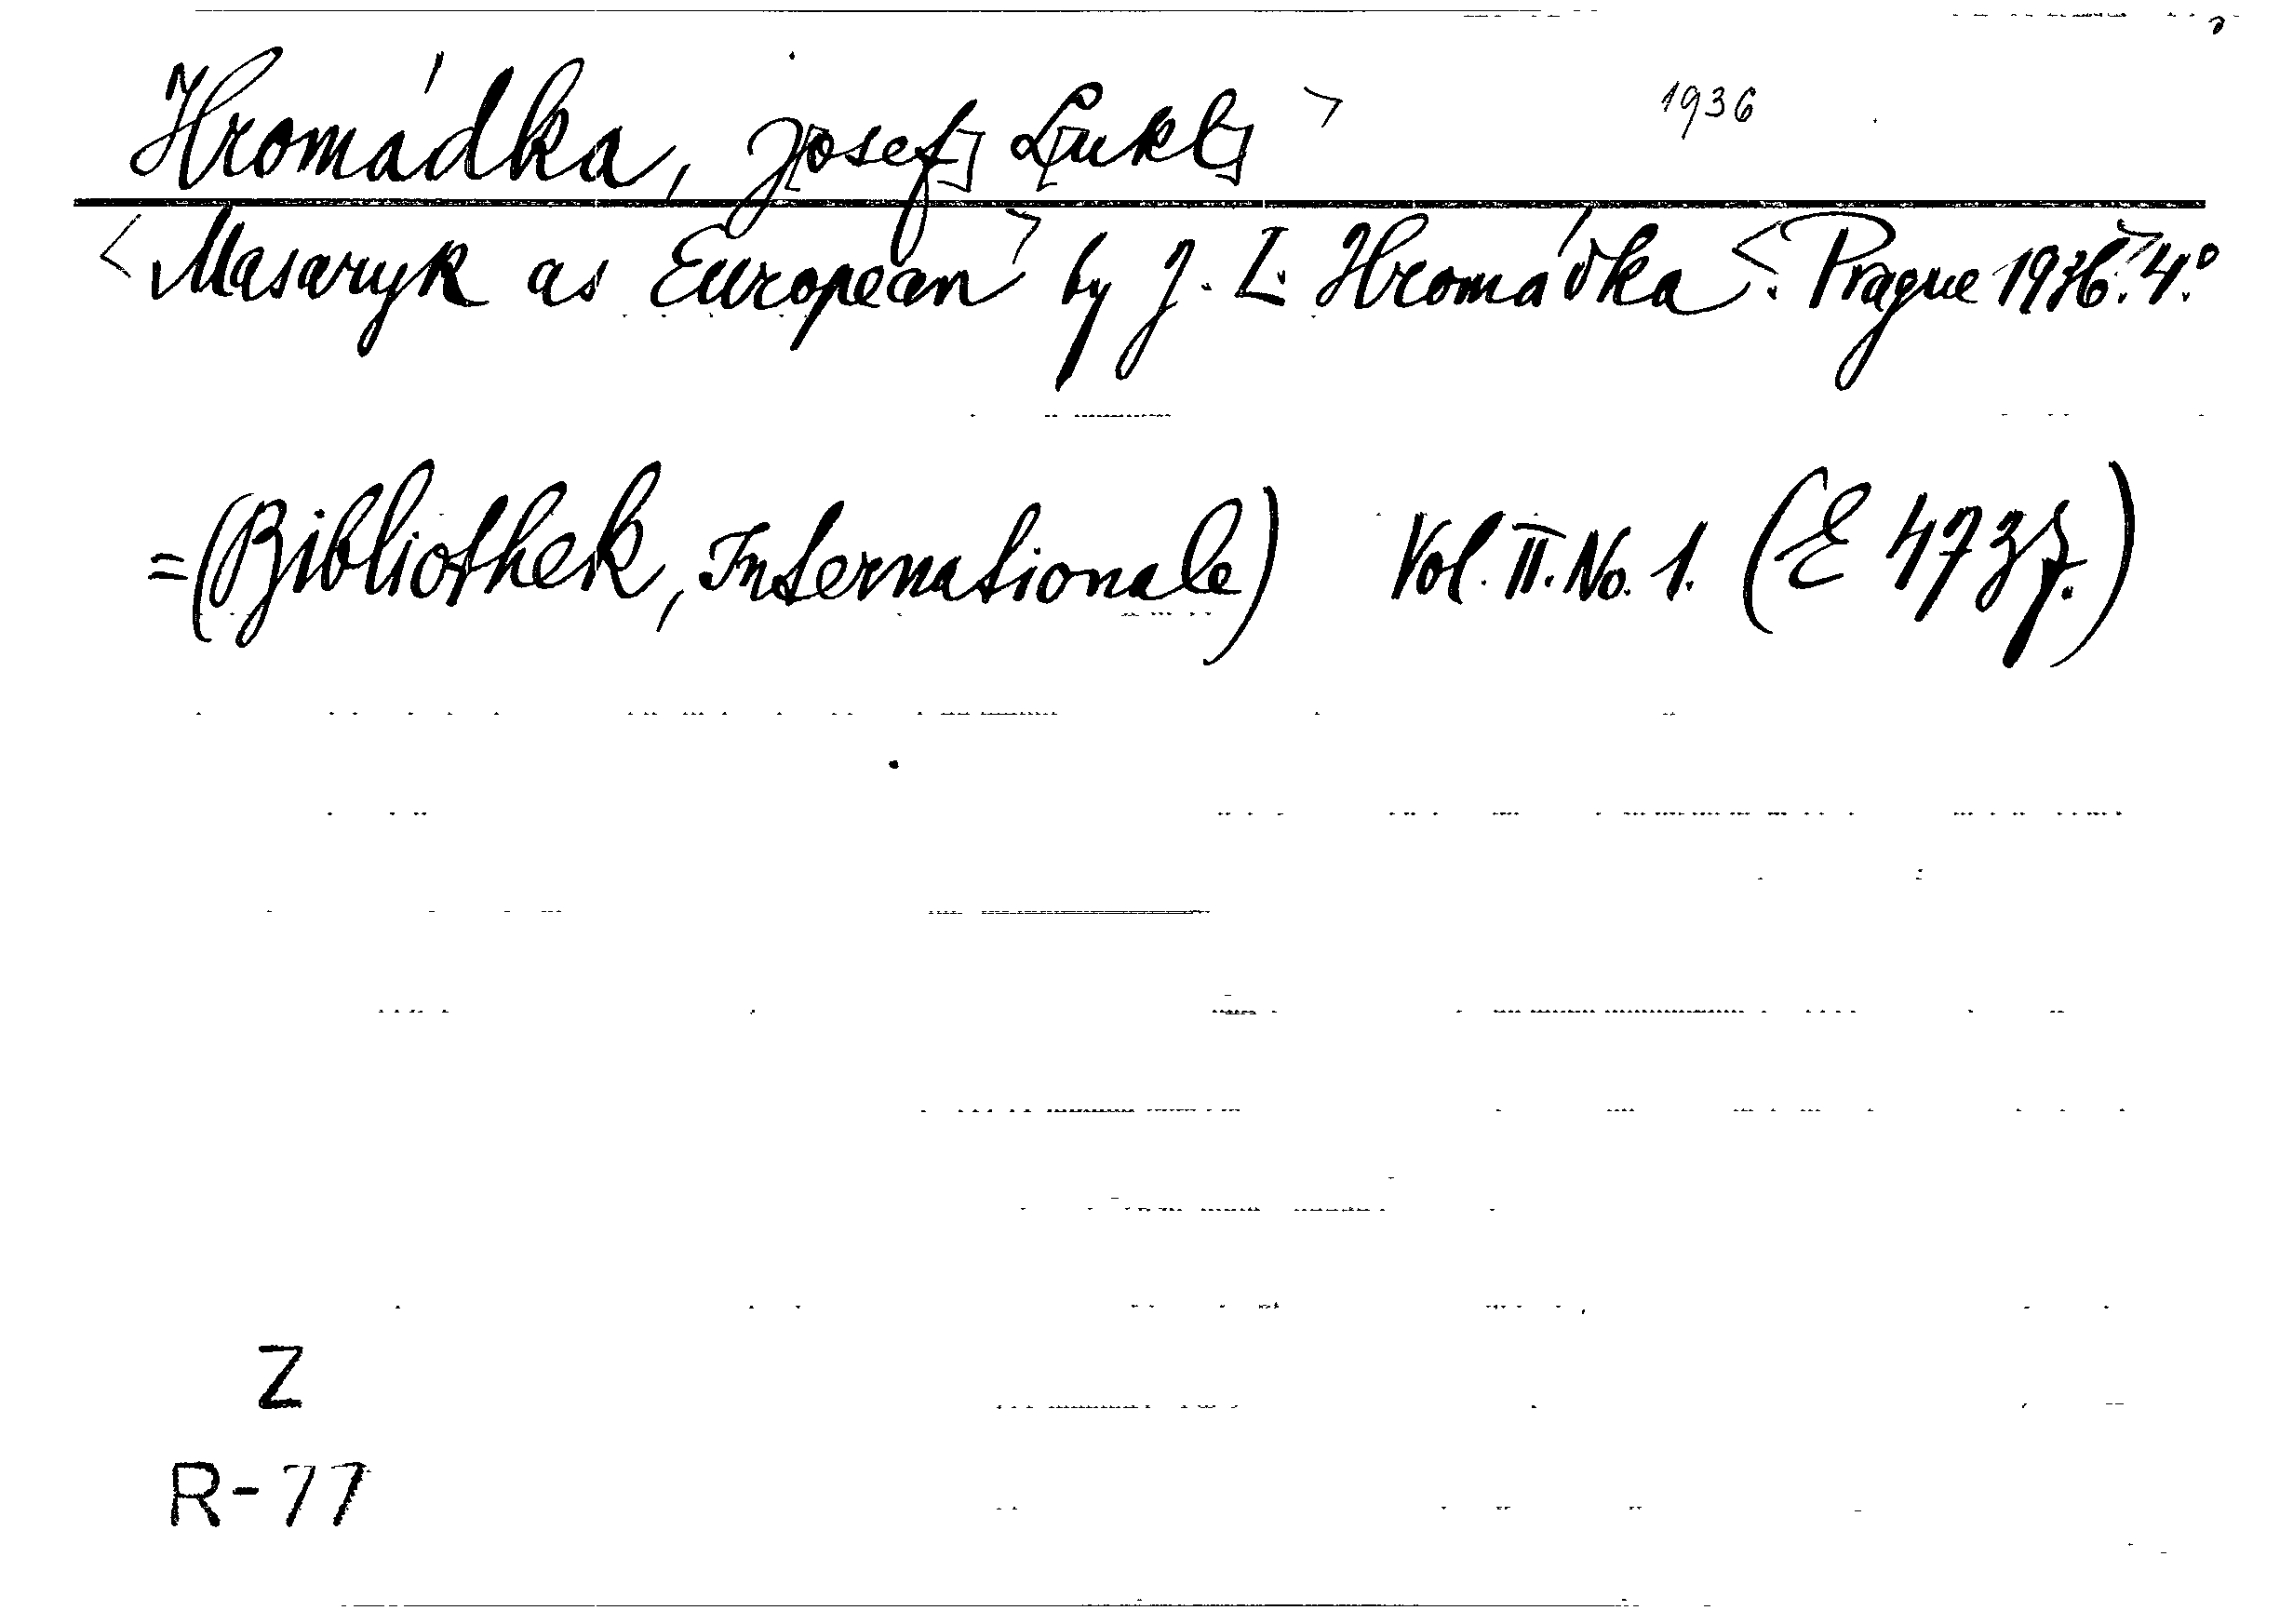 Hromádka, J[osef] L[ukl] > 1936
< Masaryk as European > by J. L. Hromádka <. Prague 1936. > 4.°
= (Bibliothek, Internationale) Vol. II. No. 1. (E 4737.)
Z
R-77